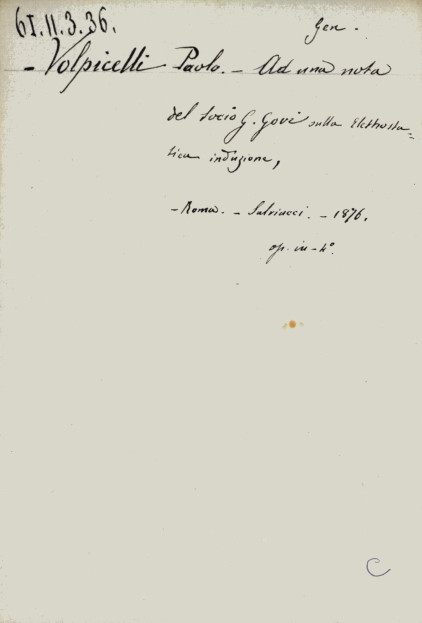 61.11.3.36.
Gen.
- Volpicelli Paolo. - Ad una nota
del socio G. Govi sulla Elettrosta=
tica induzione,
- Roma. - Salviucci. - 1876.
op. in-4°.
C